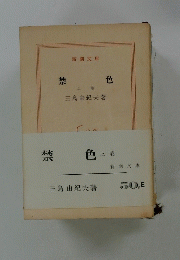 新潮文庫
禁色
上巻
三島由紀夫著
禁色 上巻
新潮文庫
三島由紀夫著